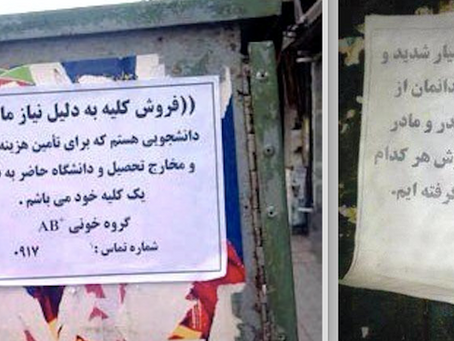 ((فروش کلیه به دلیل نیاز
دانشجویی هستم که برای تأمین هزینه
و مخارج تحصیل و دانشگاه حاضر به
یک کلیه خود می باشم .
گروه خونی AB+
شماره تماس : ۰۹۱۷
شدید و
از
و مادر
هر کدام
ایم.